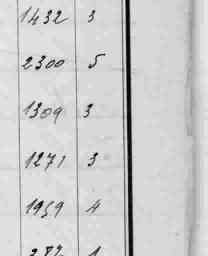 1432 3
2300 5
1309 3
1271 3
1959 4